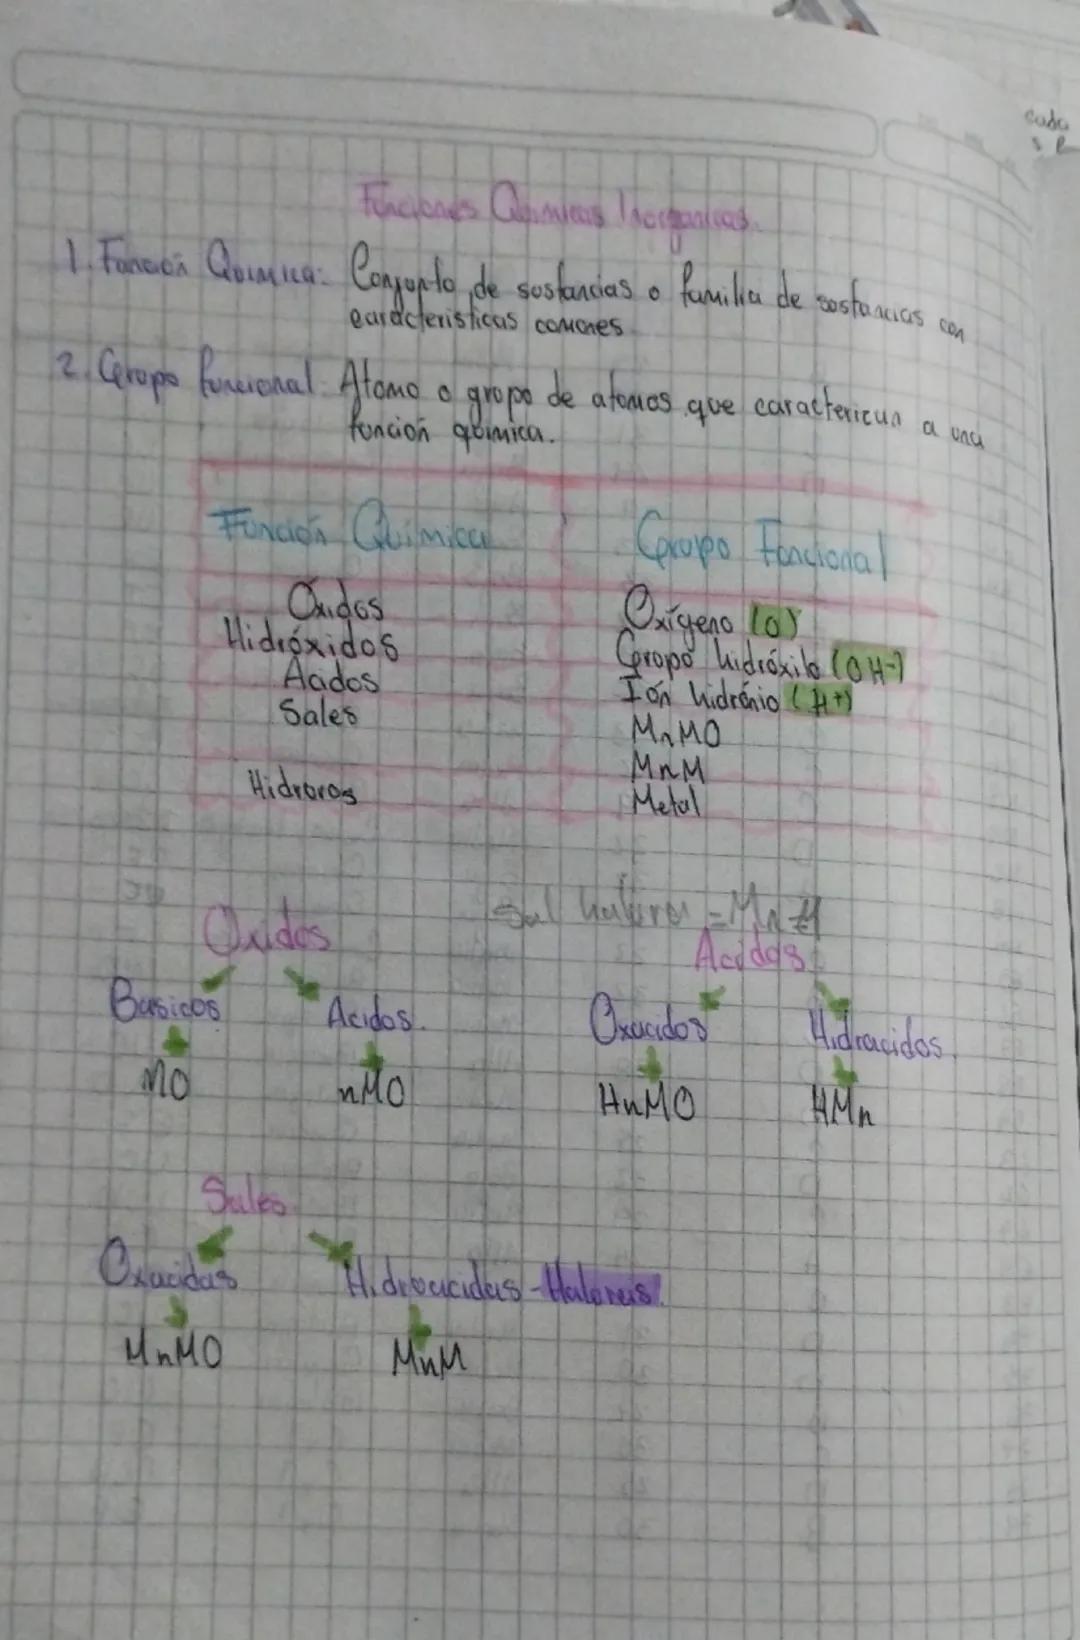 cada
Funciones Quimicas Inorganicas.
1. Función Quimica: Conjunto de sustancias o familia de sustancias con
caracteristicas comunes
2. Grupo funcional: Atomo o grupo de atomos que caractericun a una
función quimica.
Función Quimica Grupo Funcional
Oxidos Oxígeno (O)
Hidróxidos Grupo hidróxilo (OH-)
Acidos Ión hidrónio (H+)
Sales MnMO
MnM
Hidroros Metal
Sal halorea = MnM
Oxidos Acidos
Basicos Acidos. Oxacidos Hidracidos.
MO nMO HnMO HMn
Sales
Oxacidas Hidroacidas - Haloreas.
MnMO MnM